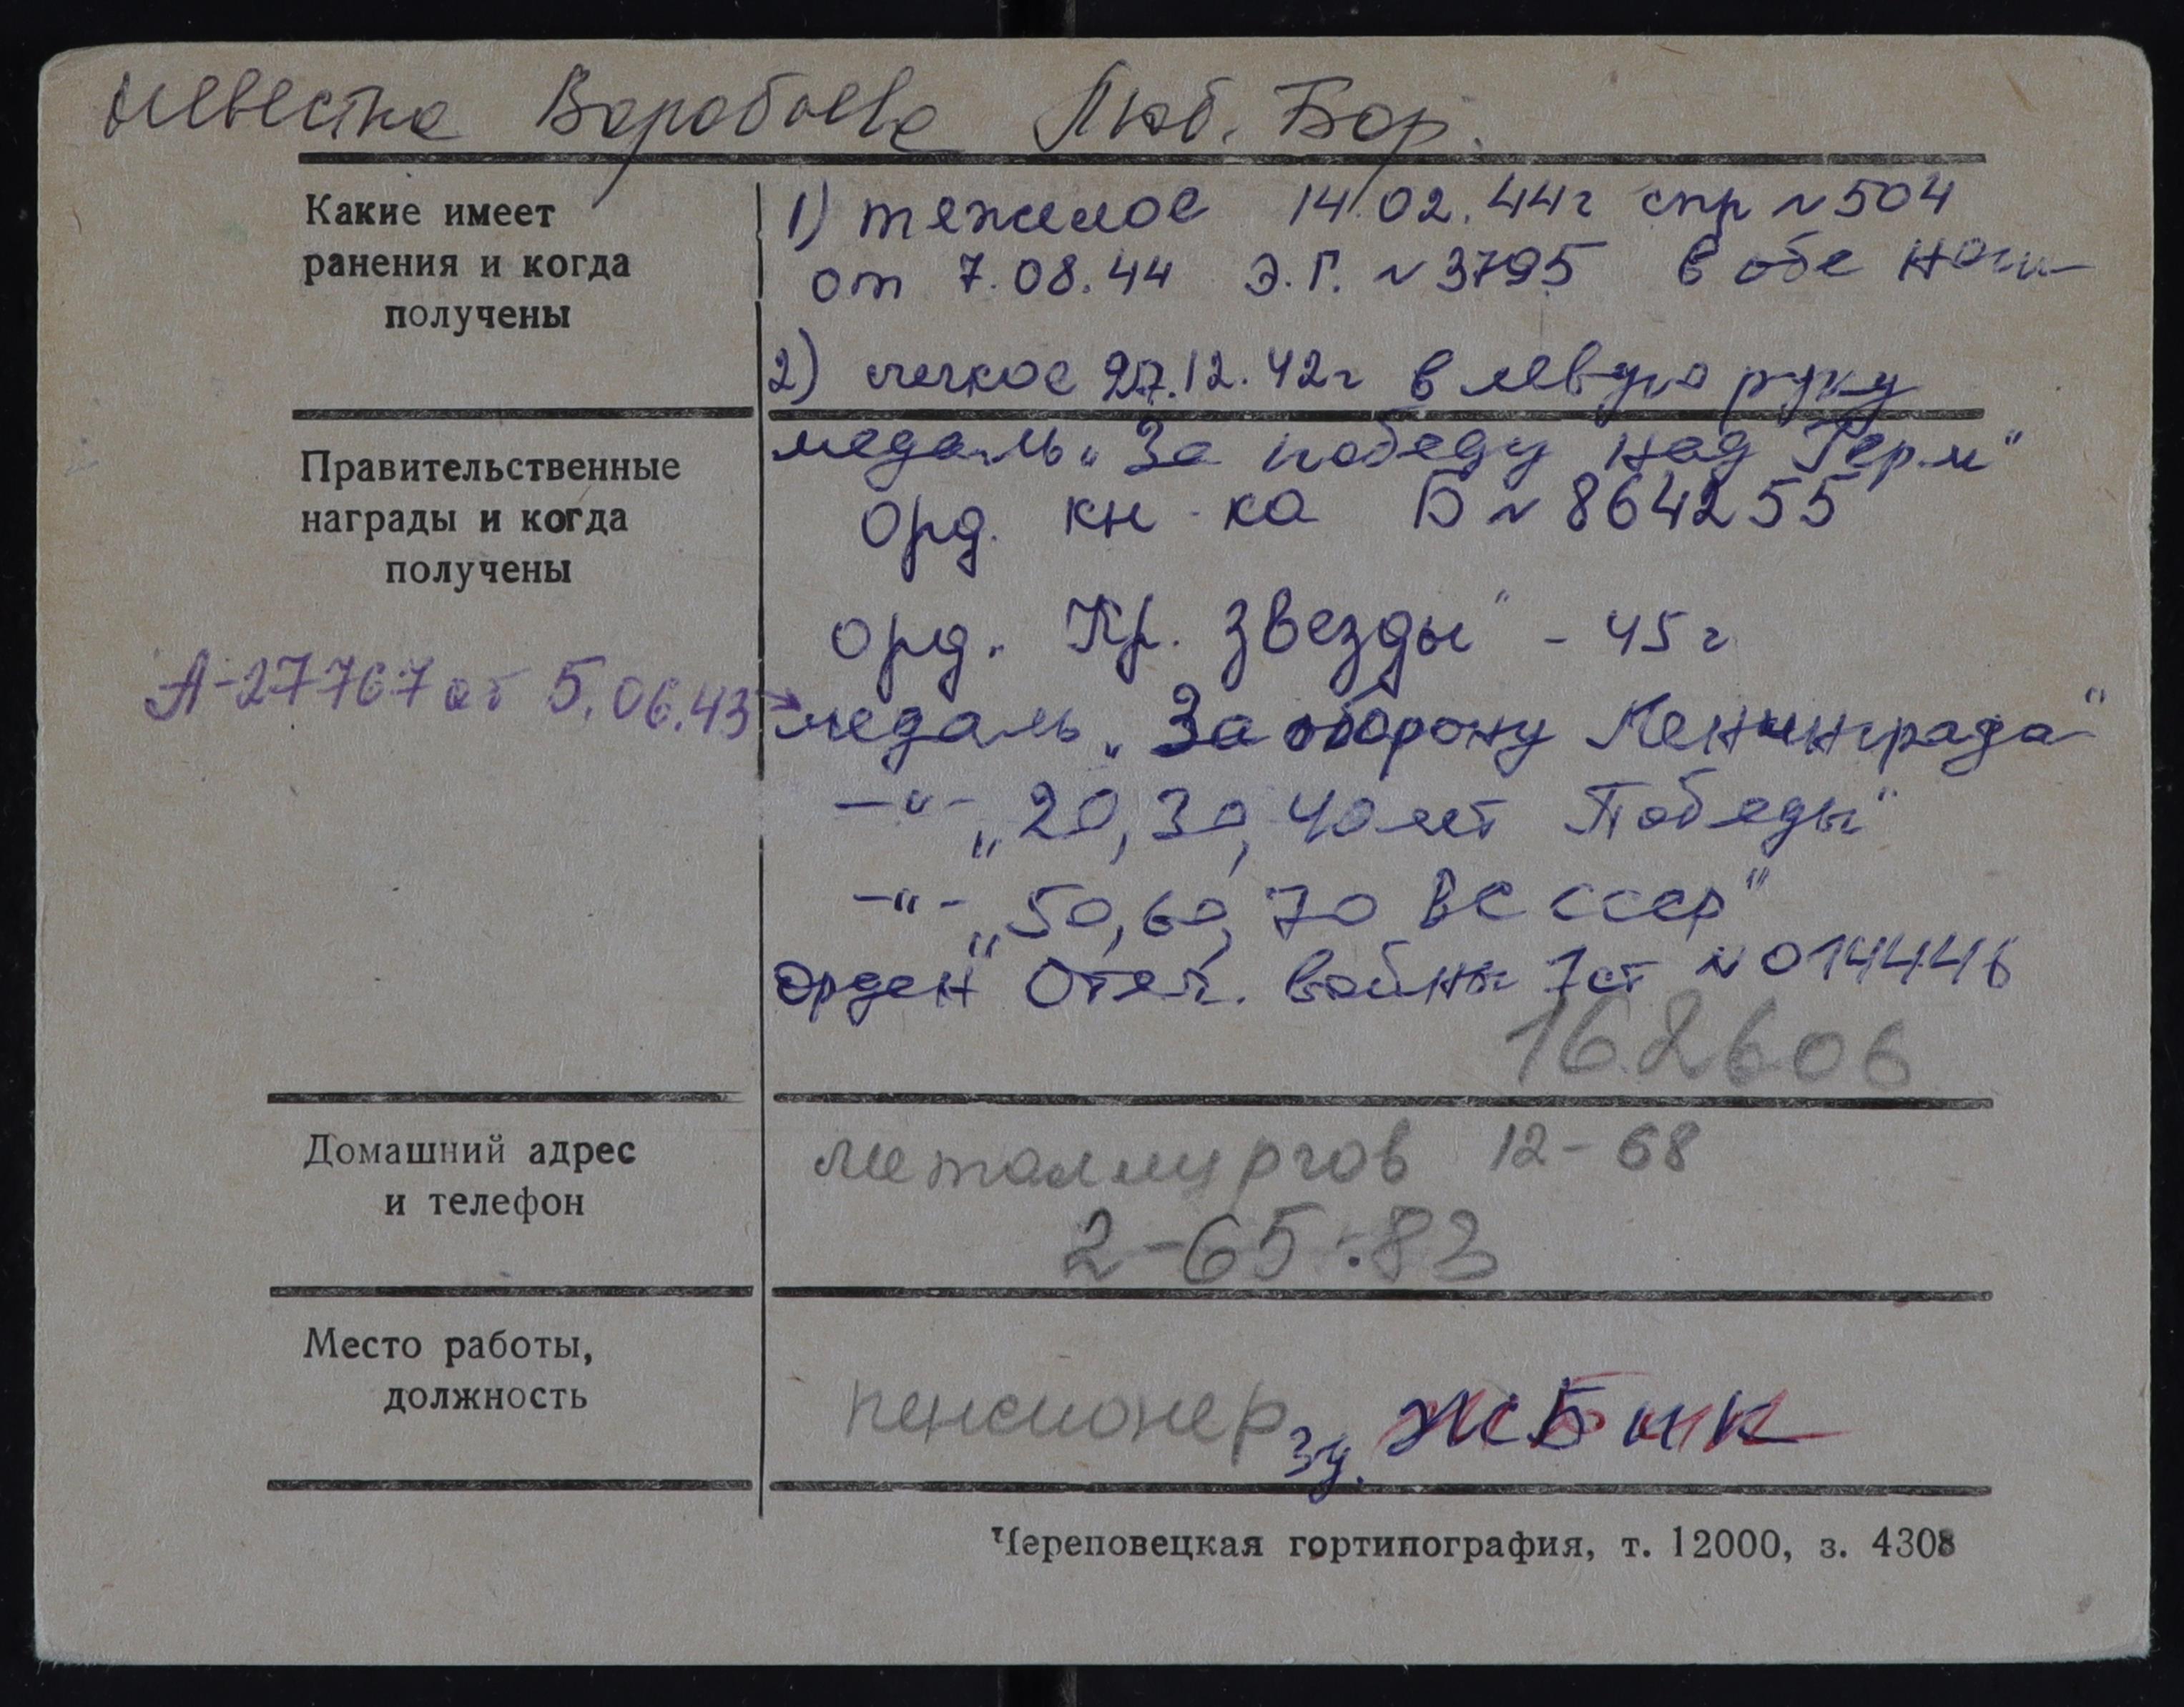 невестка Воробьева Люб. Бор.
Какие имеет
ранения и когда
получены
1) тяжелое 14.02.44г спр №504
от 7.08.44 Э.Г. №3795 в обе ноги
2) легкое 27.12.42г в левую руку
Правительственные
награды и когда
получены
медаль „За победу над Герм"
орд. кн-ка Б №864255
орд. Кр. Звезды" - 45г
А-27767 от 5.06.43 →
медаль „За оборону Ленинграда"
-"- „20, 30, 40 лет Победы"
-"- „50, 60, 70 ВС СССР"
орден" Отеч. войны 1 ст №014446
162606
Домашний адрес
и телефон
металлургов 12-68
2-65-83
Место работы,
должность
пенсионер зу. ЖБиК
Череповецкая гортипография, т. 12000, з. 4308